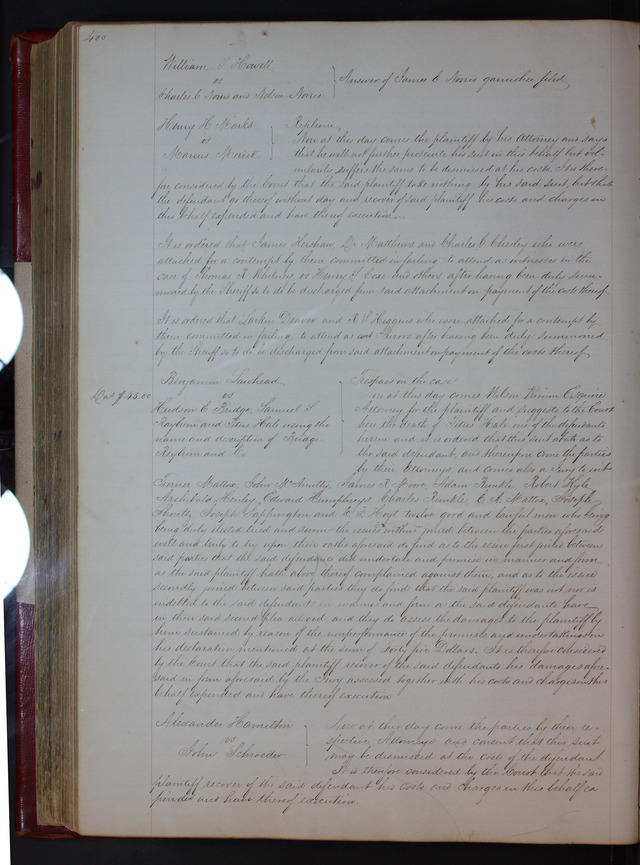 400
William T Howell
vs
Charles C Norris and Nelson Norris
Answer of James C Norris garnishee filed
Henry H Marks
vs
Marcus Merick
Replevin,
Now at this day comes the plaintiff by his Attorney and says
that he will not further prosecute his suit in this behalf but vol-
untarily suffers the same to be dismissed at his costs. It is there-
fore considered by the Court that the said plaintiff take nothing by his said suit, but that
the defendant go thereof without day and recover of said plaintiff his costs and charges in
this behalf expended and have thereof execution.
It is ordered that James Hershaw, Dr Matthews and Charles C Chesley who were
attached for a contempt by them committed in failing to attend as witnesses in the
case of Thomas R Whitney vs Henry S Case and others after having been duly sum-
moned by the Sheriff so to do be discharged from said attachment on payment of the costs thereof.
It is ordered that Larkin Deaver and R S Higgins who were attached for a contempt by
them committed in failing to attend as Jurors after having been duly summoned
by the Sheriff so to do be discharged from said attachment on payment of the costs thereof
Benjamin Lawhead
Dam $45.00
vs
Hudson E Bridge, Samuel S
Rayburn and Titus Hale using the
name and description of Bridge
Rayburn and Co
Trespass on the case
Now at this day comes Wilson Primm Esquire
Attorney for the plaintiff and suggests to the Court
here the death of Titus Hale one of the defendants
herein and it is ordered that this suit abate as to
the said defendant, and thereupon come the parties
by their attorneys, and comes also a Jury to wit
Turner Mattox, John McAnulty, James R Moore, Adam Runkle, Robert Kyle,
Archibald Henley, Edward Humphreys, Charles Runkle, E A Mattox, Joseph
Joseph Sappington and E F Hoyt twelve good and lawful men who being
being duly elected tried and sworn the issues within joined between the parties aforesaid
well and truly to try upon their oaths aforesaid do find as to the issue first joined between
said parties that the said defendants did undertake and promise in manner and form
as the said plaintiff hath above thereof complained against them, and as to the issue
secondly joined between said parties they do find that the said plaintiff was not nor is
indebted to the said defendants in manner and form as the said defendants have
in their said second plea alleged, and they do assess the damages to the plaintiff by
him sustained by reason of the nonperformance of the promises and undertakings in
his declaration mentioned at the sum of forty five Dollars. It is therefore considered
by the Court that the said plaintiff recover of the said defendants his damages afore-
said in form aforesaid by the Jury assessed together with his costs and charges in this
behalf expended and have thereof execution
Alexander Hamilton
vs
John Schroeder
Now at this day come the parties by their re-
spective Attorneys and consent that this suit
may be dismissed at the cost of the defendant
It is therefore considered by the Court that the said
plaintiff recover of the said defendant his costs and charges in this behalf ex
pended and have thereof execution.